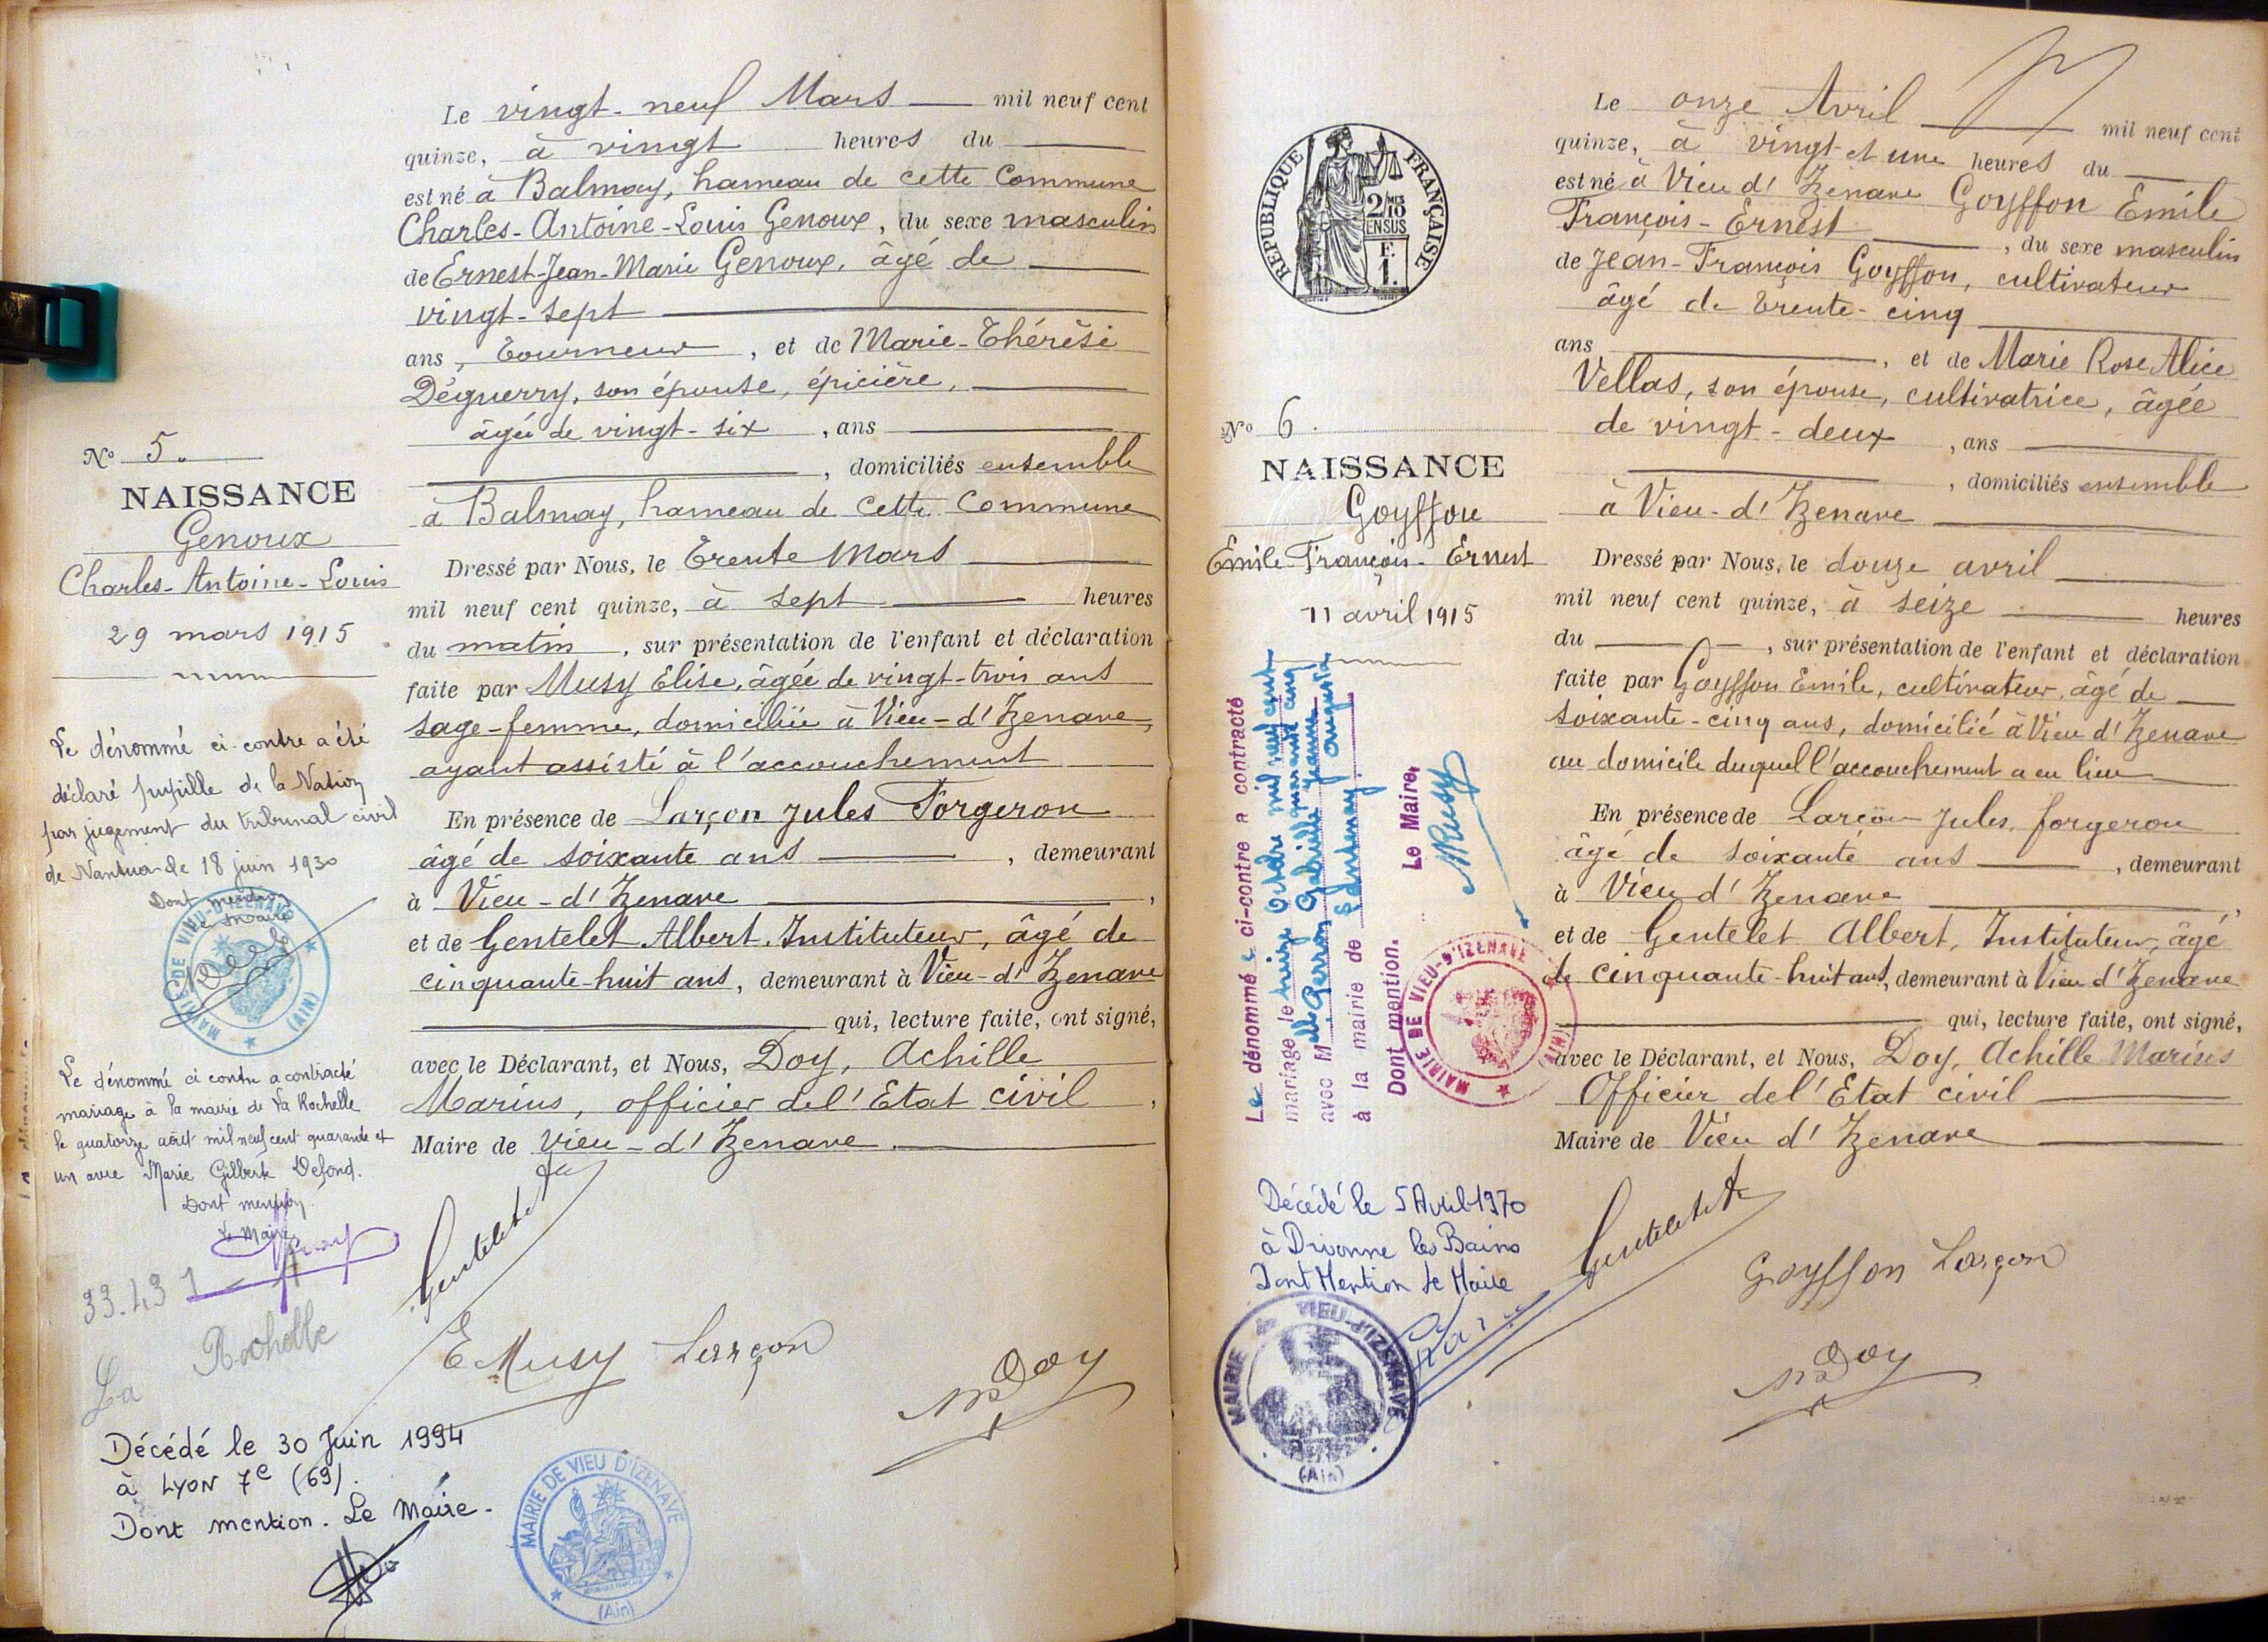 Le vingt-neuf Mars mil neuf cent
quinze, à vingt heures du
est né à Balmay, hameau de cette Commune
Charles-Antoine-Louis Genoux, du sexe masculin
de Ernest-Jean-Marie Genoux, âgé de
vingt-sept
ans, tourneur, et de Marie-Thérèse
Déguerry, son épouse, épicière,
âgée de vingt-six, ans
, domiciliés ensemble
à Balmay, hameau de cette Commune
Dressé par Nous, le trente Mars
mil neuf cent quinze, à sept heures
du matin, sur présentation de l'enfant et déclaration
faite par Musy Elise, âgée de vingt-trois ans
sage-femme, domiciliée à Vieu-d'Izenave,
ayant assisté à l'accouchement
En présence de Larçon Jules Forgeron
âgé de soixante ans, demeurant
à Vieu-d'Izenave,
et de Gentelet Albert, Instituteur, âgé de
cinquante-huit ans, demeurant à Vieu-d'Izenave
qui, lecture faite, ont signé,
avec le Déclarant, et Nous, Doy, Achille
Marius, officier de l'Etat civil,
Maire de Vieu-d'Izenave.
Gentelet A
E Musy Larçon
M Doy
N° 5.
NAISSANCE
Genoux
Charles-Antoine-Louis
29 mars 1915
Le dénommé ci-contre a été
déclaré pupille de la Nation
par jugement du tribunal civil
de Nantua de 18 juin 1930
Dont mention
Le Maire
MAIRIE DE VIEU-D'IZENAVE
(AIN)
Le dénommé ci contre a contracté
mariage à la mairie de La Rochelle
le quatorze août mil neuf cent quarante et
un avec Marie Gilberte Defond.
Dont mention
Le Maire
33.43 1
La Rochelle
Décédé le 30 Juin 1994
à LYON 7e (69).
Dont mention. Le Maire.
MAIRIE DE VIEU D'IZENAVE
(Ain)
REPUBLIQUE FRANÇAISE
2/10 MES
EN SUS
F.
1.
Le onze Avril mil neuf cent
quinze, à vingt et une heures du
est né à Vieu d'Izenave Goyffon Emile
François-Ernest, du sexe masculin
de Jean-François Goyffon, cultivateur
âgé de trente-cinq
ans, et de Marie Rose Alice
Vellas, son épouse, cultivatrice, âgée
de vingt-deux, ans
, domiciliés ensemble
à Vieu-d'Izenave
Dressé par Nous, le douze avril
mil neuf cent quinze, à seize heures
du, sur présentation de l'enfant et déclaration
faite par Goyffon Emile, cultivateur, âgé de
soixante-cinq ans, domicilié à Vieu d'Izenave
au domicile duquel l'accouchement a eu lieu
En présence de Larçon Jules, forgeron
âgé de soixante ans, demeurant
à Vieu d'Izenave,
et de Gentelet Albert, Instituteur, âgé
de cinquante-huit ans, demeurant à Vieu d'Izenave
qui, lecture faite, ont signé,
avec le Déclarant, et Nous, Doy, Achille Marius
Officier de l'Etat civil
Maire de Vieu d'Izenave
Gentelet A
Goyffon Larçon
M Doy
N° 6.
NAISSANCE
Goyffon
Emile-François-Ernest
11 avril 1915
Le dénommé ci-contre a contracté
mariage le treize Octobre mil neuf cent quarante cinq
avec Mlle Perrin Gabrielle Jeanne Augusta
à la mairie de
Dont mention.
Le Maire,
Musy
MAIRIE DE VIEU-D'IZENAVE
(AIN)
Décédé le 5 Avril 1970
à Divonne les Bains
Dont Mention Le Maire
MAIRIE de VIEU-D'IZENAVE
(Ain)